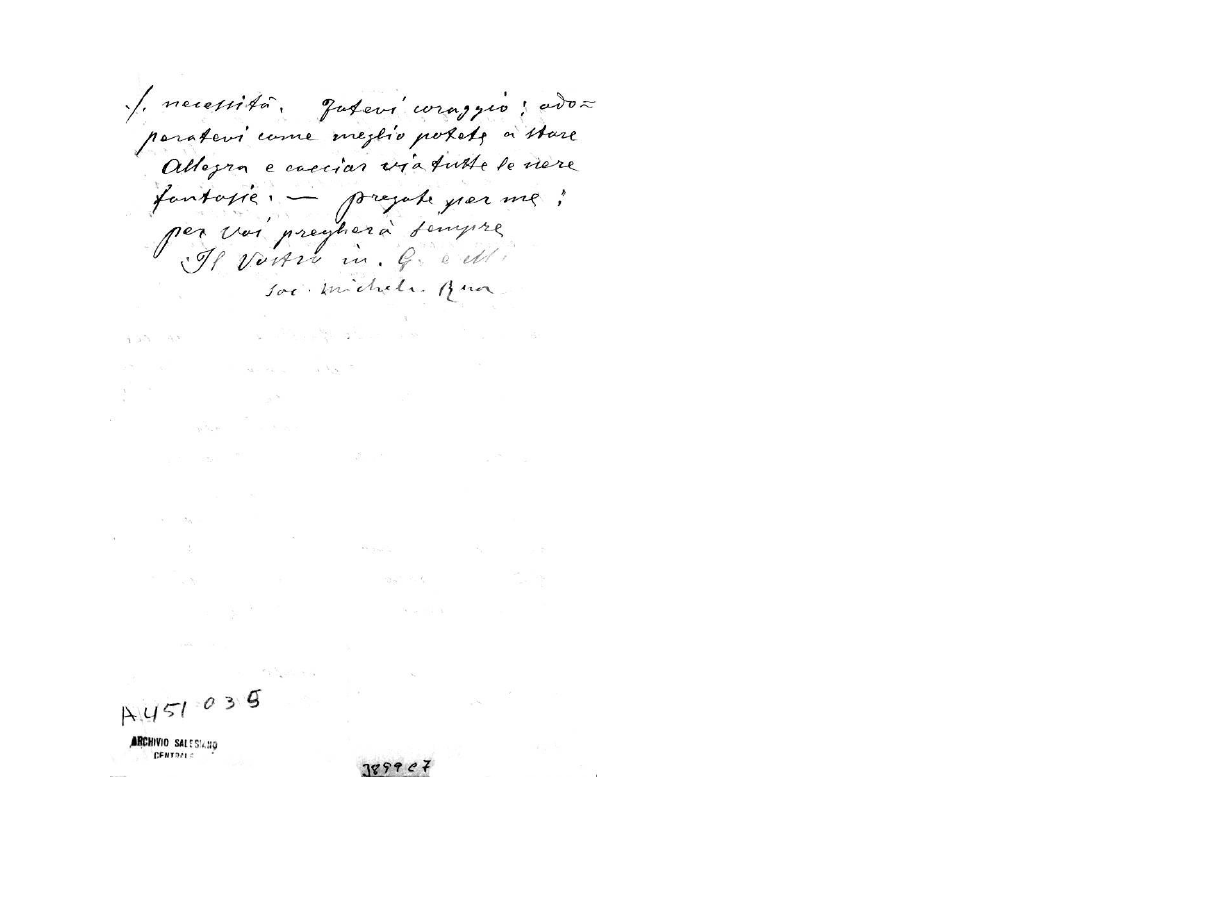 ./. necessità. Fatevi coraggio; ado=
peratevi come meglio potete a stare
Allegra e cacciar via tutte le nere
fantasie. — pregate per me;
per voi pregherà sempre
Il Vostro in. G. e M.
Sac. Michele Rua
A451035
ARCHIVIO SALESIANO
CENTRALE
3899 C7